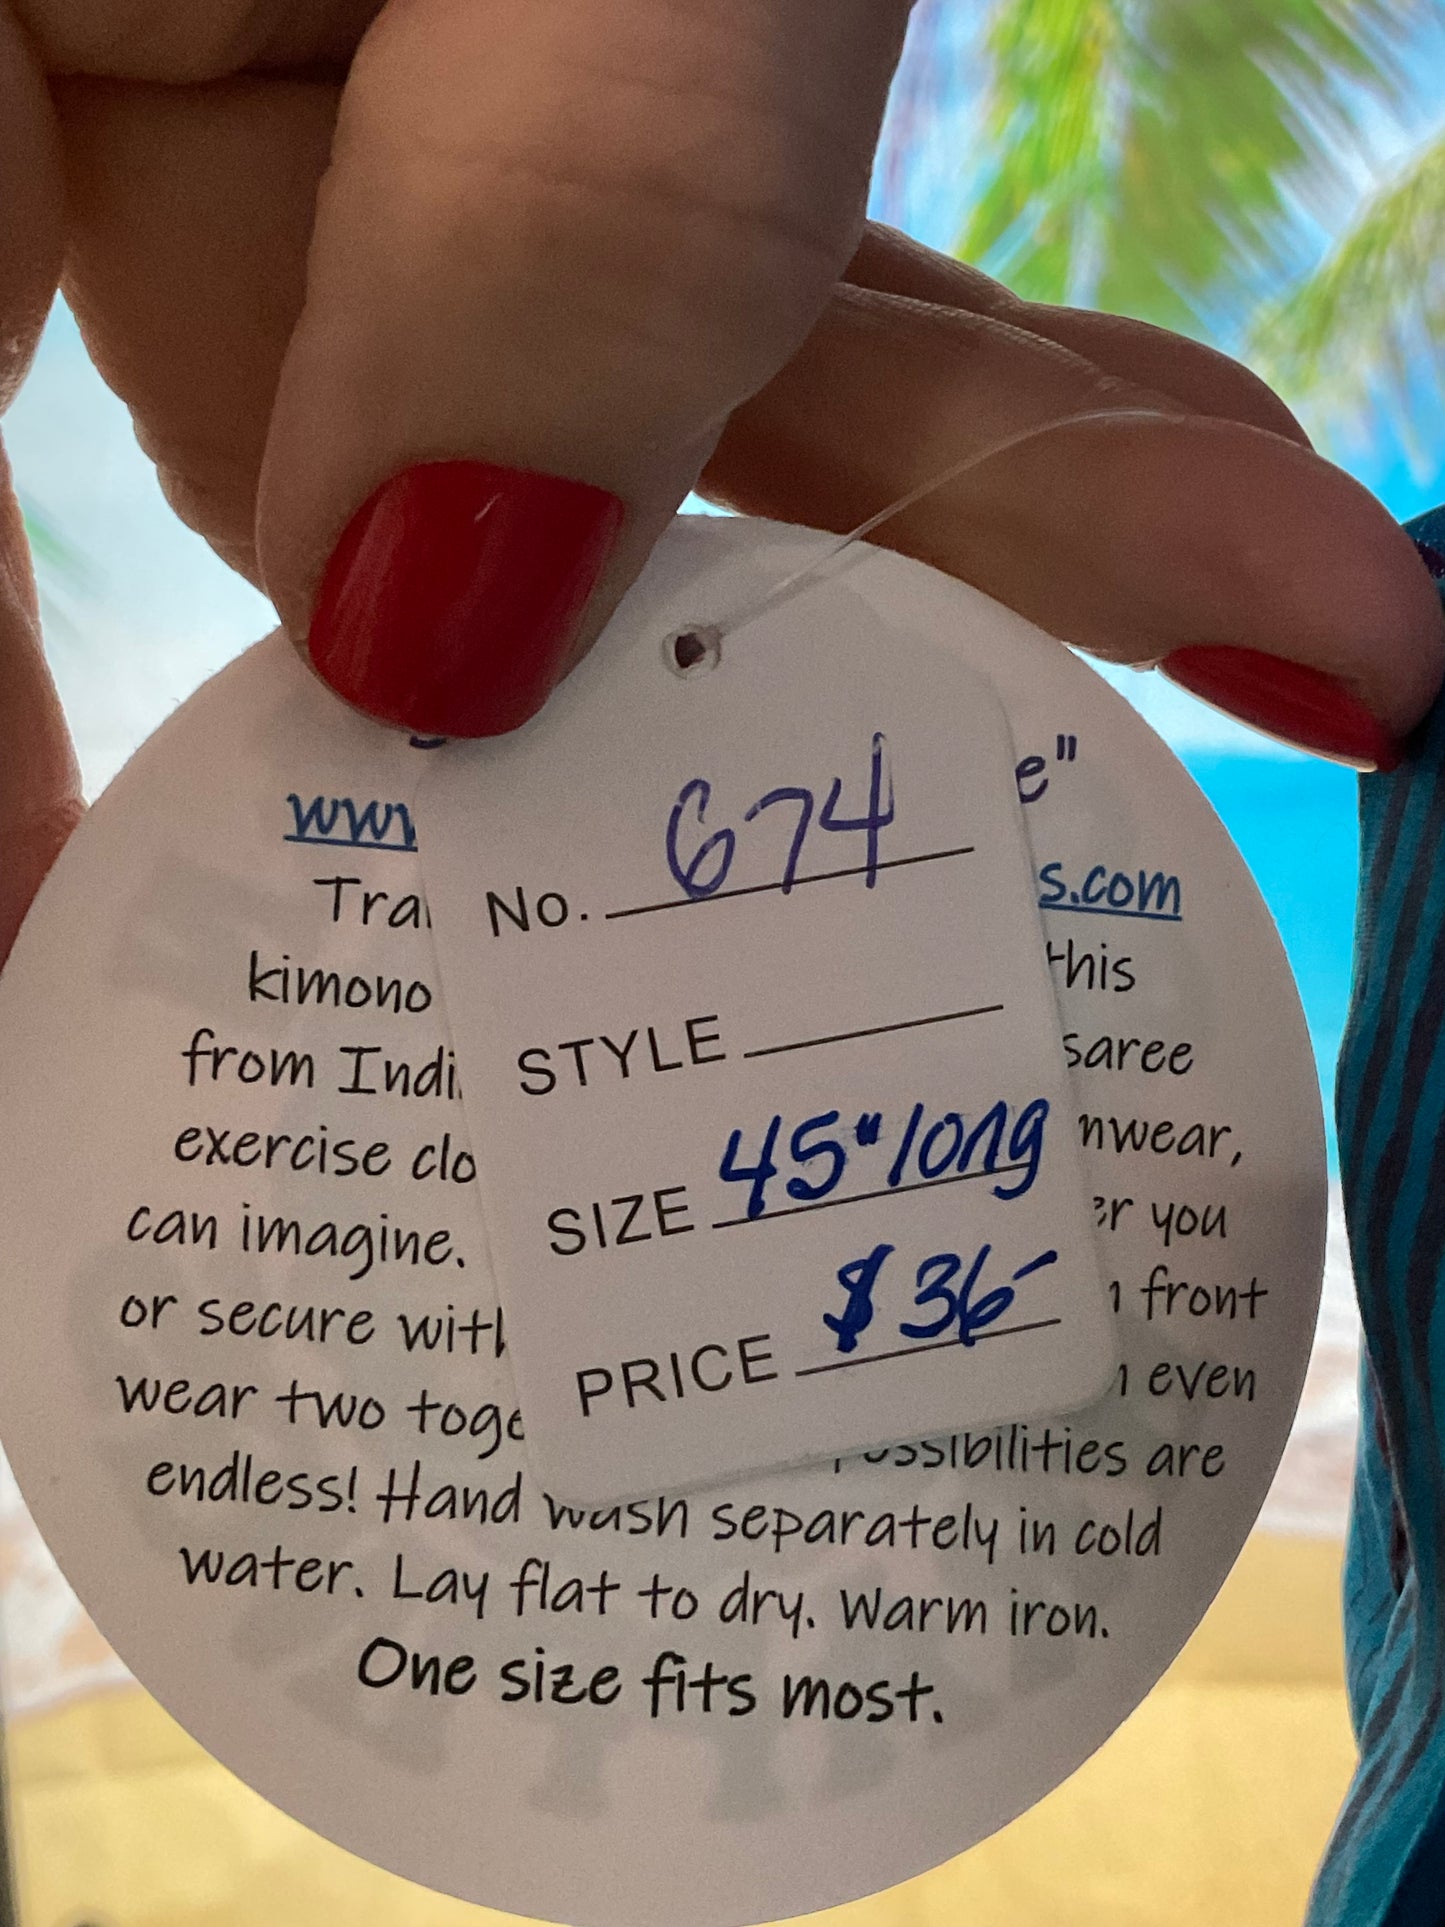 No. 674
STYLE
SIZE 45" long
PRICE $36-
e"
www s.com
Tra this
kimono saree
from Indi nwear,
exercise clo er you
can imagine. front
or secure with even
wear two toge possibilities are
endless! Hand wash separately in cold
water. Lay flat to dry. Warm iron.
One size fits most.